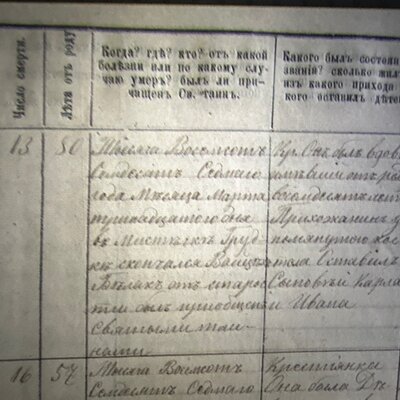 Число смерти.
Лѣта отъ роду
Когда? гдѣ? кто? отъ какой
болѣзни или по какому слу-
чаю умеръ? былъ ли при-
чащенъ Св. таинъ.
Какого былъ состоя
званія? сколько жил
изъ какого прихода
кого оставилъ дѣте
13
80
Тысяча Восемсотъ
Семдесятъ Седмаго
года Мѣсяца Марта
тринадцатого дня
въ Мѣстечкѣ Груд-
кѣ скончался Войцѣхъ
отъ старос
ти былъ пріобщенъ
святыми тай-
нами
Кр. Онъ былъ вдов
имѣвшій отъ ро
восемдесятъ лѣт
Прихожанинъ
помянутого кос
тела Оставилъ
Сыновей Карла
и Ивана
16
57
Тысяча Восемсотъ
Семдесятъ Седмаго
Крестьянка
Она была